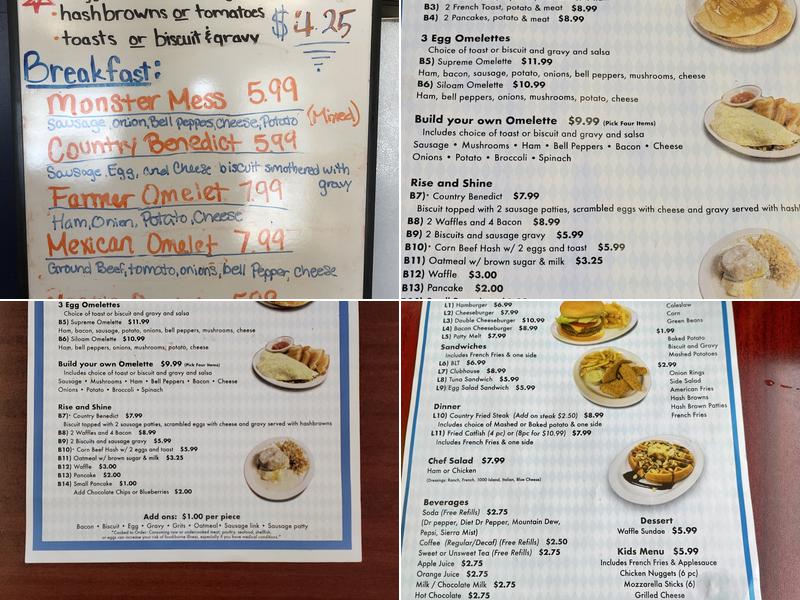 · hashbrowns or tomatoes
· toasts or biscuit & gravy
$4.25
Breakfast:
Monster Mess 5.99
Sausage, onion, Bell Peppos, Cheese, Potato (Mixed)
Country Benedict 5.99
Sausage, Egg, and Cheese biscuit smothered with gravy
Farmer Omelet 7.99
Ham, Onion, Potato, Cheese
Mexican Omelet 7.99
Ground Beef, tomato, onions, bell Pepper, cheese
B3) 2 French Toast, potato & meat $8.99
B4) 2 Pancakes, potato & meat $8.99
3 Egg Omelettes
Choice of toast or biscuit and gravy and salsa
B5) Supreme Omelette $11.99
Ham, bacon, sausage, potato, onions, bell peppers, mushrooms, cheese
B6) Siloam Omelette $10.99
Ham, bell peppers, onions, mushrooms, potato, cheese
Build your own Omelette $9.99 (Pick Four Items)
Includes choice of toast or biscuit and gravy and salsa
Sausage • Mushrooms • Ham • Bell Peppers • Bacon • Cheese
Onions • Potato • Broccoli • Spinach
Rise and Shine
B7)* Country Benedict $7.99
Biscuit topped with 2 sausage patties, scrambled eggs with cheese and gravy served with hash
B8) 2 Waffles and 4 Bacon $8.99
B9) 2 Biscuits and sausage gravy $5.99
B10)* Corn Beef Hash w/ 2 eggs and toast $5.99
B11) Oatmeal w/ brown sugar & milk $3.25
B12) Waffle $3.00
B13) Pancake $2.00
3 Egg Omelettes
Choice of toast or biscuit and gravy and salsa
B5) Supreme Omelette $11.99
Ham, bacon, sausage, potato, onions, bell peppers, mushrooms, cheese
B6) Siloam Omelette $10.99
Ham, bell peppers, onions, mushrooms, potato, cheese
Build your own Omelette $9.99 (Pick Four Items)
Includes choice of toast or biscuit and gravy and salsa
Sausage • Mushrooms • Ham • Bell Peppers • Bacon • Cheese
Onions • Potato • Broccoli • Spinach
Rise and Shine
B7)* Country Benedict $7.99
Biscuit topped with 2 sausage patties, scrambled eggs with cheese and gravy served with hashbrowns
B8) 2 Waffles and 4 Bacon $8.99
B9) 2 Biscuits and sausage gravy $5.99
B10)* Corn Beef Hash w/ 2 eggs and toast $5.99
B11) Oatmeal w/ brown sugar & milk $3.25
B12) Waffle $3.00
B13) Pancake $2.00
B14) Small Pancake $1.00
Add Chocolate Chips or Blueberries $2.00
Add ons: $1.00 per piece
Bacon • Biscuit • Egg • Gravy • Grits • Oatmeal • Sausage link • Sausage patty
*Cooked to Order: Consuming raw or undercooked meat, poultry, seafood, shellfish,
or eggs can increase your risk of foodborne illness, especially if you have medical conditions.*
L1) Hamburger $6.99
L2) Cheeseburger $7.99
L3) Double Cheeseburger $10.99
L4) Bacon Cheeseburger $8.99
L5) Patty Melt $7.99
Sandwiches
Includes French Fries & one side
L6) BLT $6.99
L7) Clubhouse $8.99
L8) Tuna Sandwich $5.99
L9) Egg Salad Sandwich $5.99
Dinner
L10) Country Fried Steak (Add on steak $2.50) $8.99
Includes choice of Mashed or Baked potato & one side
L11) Fried Catfish (4 pc) or (8pc for $10.99) $7.99
Includes French Fries & one side
Chef Salad $7.99
Ham or Chicken
(Dressings: Ranch, French, 1000 Island, Italian, Blue Cheese)
Beverages
Soda (Free Refills) $2.75
(Dr pepper, Diet Dr Pepper, Mountain Dew,
Pepsi, Sierra Mist)
Coffee (Regular/Decaf) (Free Refills) $2.50
Sweet or Unsweet Tea (Free Refills) $2.75
Apple Juice $2.75
Orange Juice $2.75
Milk / Chocolate Milk $2.75
Hot Chocolate $2.75
Coleslaw
Corn
Green Beans
$1.99
Baked Potato
Biscuit and Gravy
Mashed Potatoes
$2.99
Onion Rings
Side Salad
American Fries
Hash Browns
Hash Brown Patties
French Fries
Dessert
Waffle Sundae $5.99
Kids Menu $5.99
Includes French Fries & Applesauce
Chicken Nuggets (6 pc)
Mozzarella Sticks (6)
Grilled Cheese